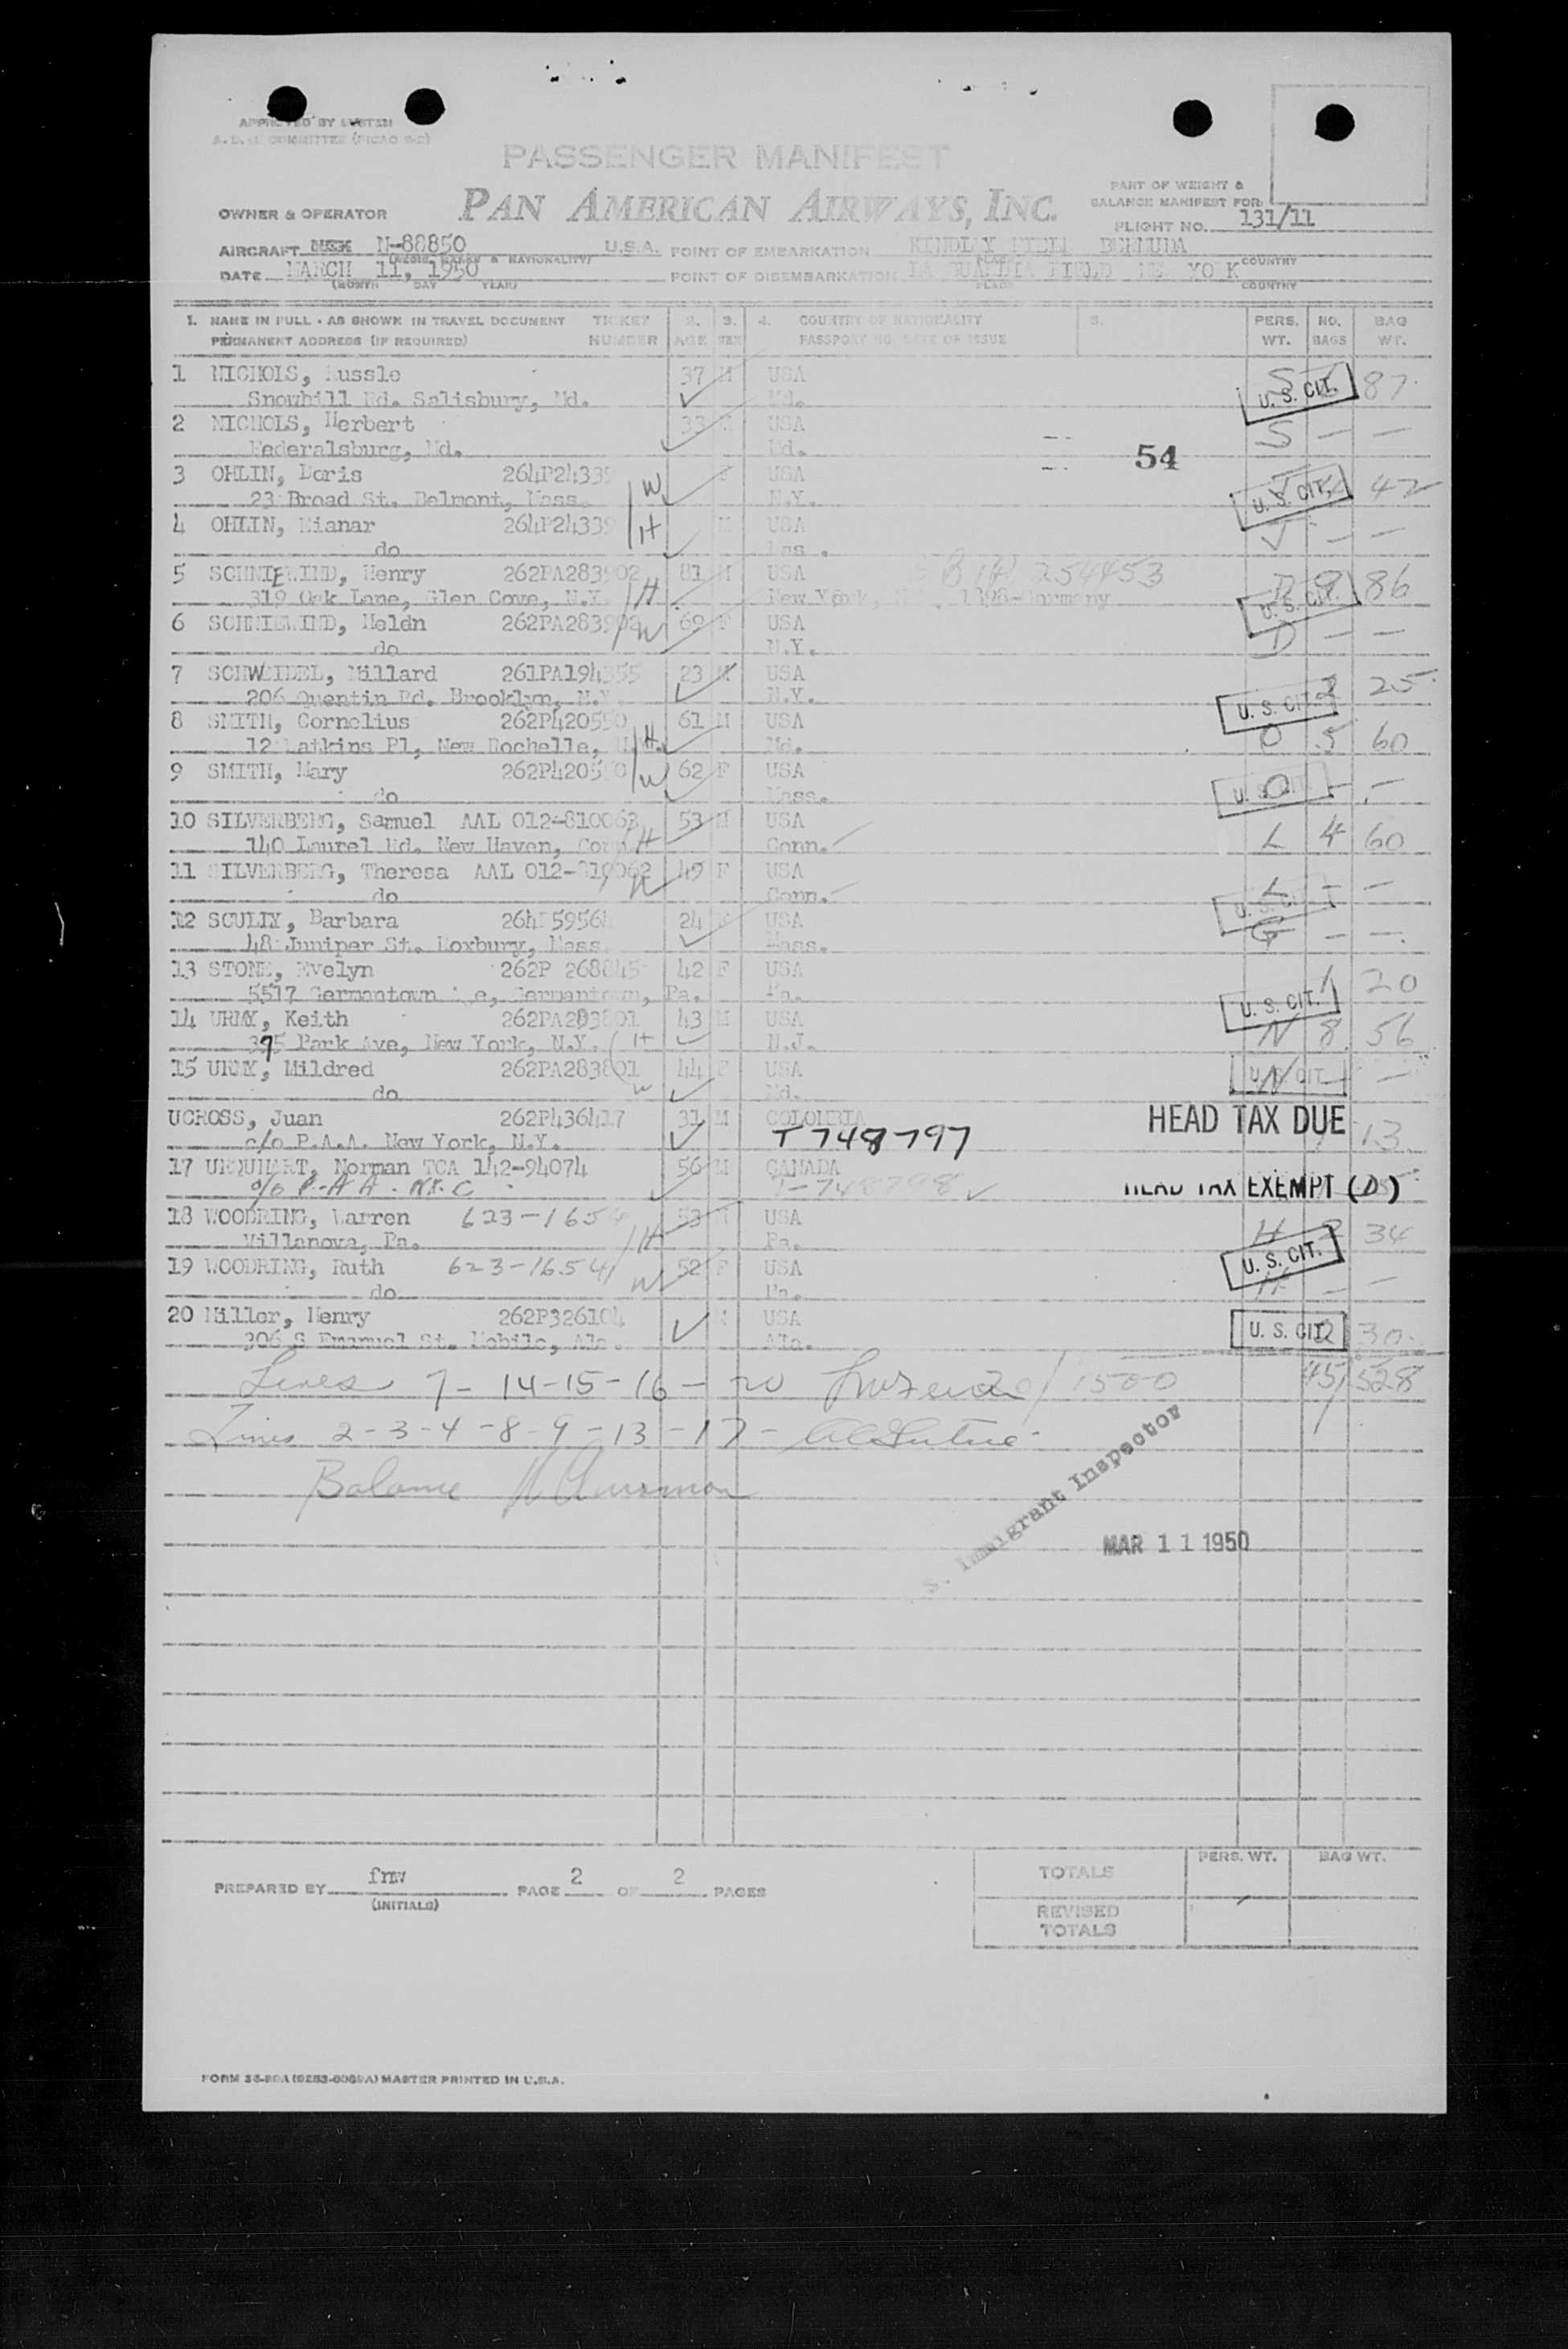 APPROVED BY SYSTEM
PASSENGER MANIFEST
PAN AMERICAN AIRWAYS, INC.
PART OF WEIGHT &
BALANCE MANIFEST FOR:
OWNER & OPERATOR
FLIGHT NO. 131/11
AIRCRAFT N-88850 U.S.A. POINT OF EMBARKATION KINDLEY FIELD BERMUDA
(REGIS. MARKS & NATIONALITY) COUNTRY
DATE MARCH 11, 1950 POINT OF DISEMBARKATION LA GUARDIA FIELD NEW YORK
(MONTH DAY YEAR) PLACE COUNTRY
1. NAME IN FULL - AS SHOWN IN TRAVEL DOCUMENT TICKET 2. 3. 4. COUNTRY OF NATIONALITY 5. PERS. NO. BAG
PERMANENT ADDRESS (IF REQUIRED) NUMBER AGE SEX PASSPORT NO. DATE OF ISSUE WT. BAGS WT.
1 NICHOLS, Russle 37 M USA S 87
Snowhill Rd. Salisbury, Md. Md. U. S. CIT.
2 NICHOLS, Herbert 33 M USA S — —
Federalsburg, Md. Md. 54
3 OHLIN, Doris 264P24339 W F USA U. S. CIT. 42
23 Broad St. Belmont, Mass. N.Y.
4 OHLIN, Einar 264P24339 H M USA V — —
do
5 SCHNIEWIND, Henry 262PA283902 81 M USA 254453 D 9 86
319 Oak Lane, Glen Cove, N.Y. H New York, Germany U. S. CIT.
6 SCHNIEWIND, Heldn 262PA283902 W 60 F USA D — —
do N.Y.
7 SCHWEIDEL, Millard 261PA194355 23 M USA 2 25
206 Quentin Rd. Brooklyn, N.Y. N.Y. U. S. CIT.
8 SMITH, Cornelius 262P420550 61 M USA O 5 60
12 Watkins Pl, New Rochelle, H Md.
9 SMITH, Mary 262P420550 W 62 F USA O — —
do Mass. U. S. CIT
10 SILVERBERG, Samuel AAL 012-810063 53 M USA L 4 60
140 Laurel Rd. New Haven, Conn H Conn.
11 SILVERBERG, Theresa AAL 012-810062 49 F USA L — —
do W Conn.
12 SCULLY, Barbara 264P59564 24 F USA G — —
48 Juniper St. Roxbury, Mass. Mass.
13 STONE, Evelyn 262P 268845 42 F USA 1 20
5517 Germantown Ave, Germantown, Pa. Pa. U. S. CIT.
14 URMY, Keith 262PA283801 43 M USA N 8 56
375 Park Ave, New York, N.Y. H N.J.
15 URMY, Mildred 262PA283801 44 F USA N — —
do W Md. U. S. CIT
UCROSS, Juan 262P436417 31 M COLOMBIA HEAD TAX DUE 1 13
c/o P.A.A. New York, N.Y. T 748797
17 URQUHART, Norman TCA 142-94074 56 M CANADA
c/o P.A.A. N.Y.C T-748798 HEAD TAX EXEMPT (D)
18 WOODRING, Warren 623-1654 53 M USA H 2 34
Villanova, Pa. H Pa. U. S. CIT.
19 WOODRING, Ruth 623-1654 W 52 F USA H —
do Pa.
20 Miller, Henry 262P326104 M USA U. S. CIT 2 30
306 S Emanuel St. Mobile, Ala. Ala.
Lines 7 - 14-15-16 - 20 1500 45 528
Lines 2-3-4-8-9-13-17 -
Balance
S. Immigrant Inspector
MAR 11 1950
PREPARED BY fmw PAGE 2 OF 2 PAGES
(INITIALS)
PERS. WT. BAG WT.
TOTALS
REVISED
TOTALS
MASTER PRINTED IN U.S.A.